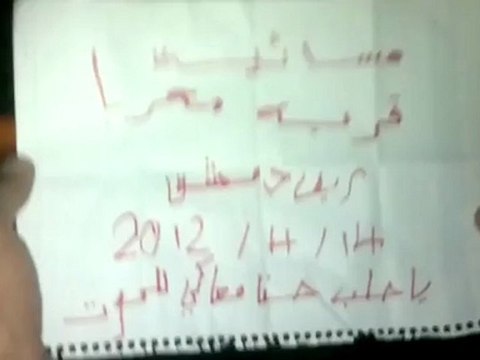 مسائية
قريه معرا
ريف دمشق
2012 / 4 / 14
يا حلب حنا معاكي للموت